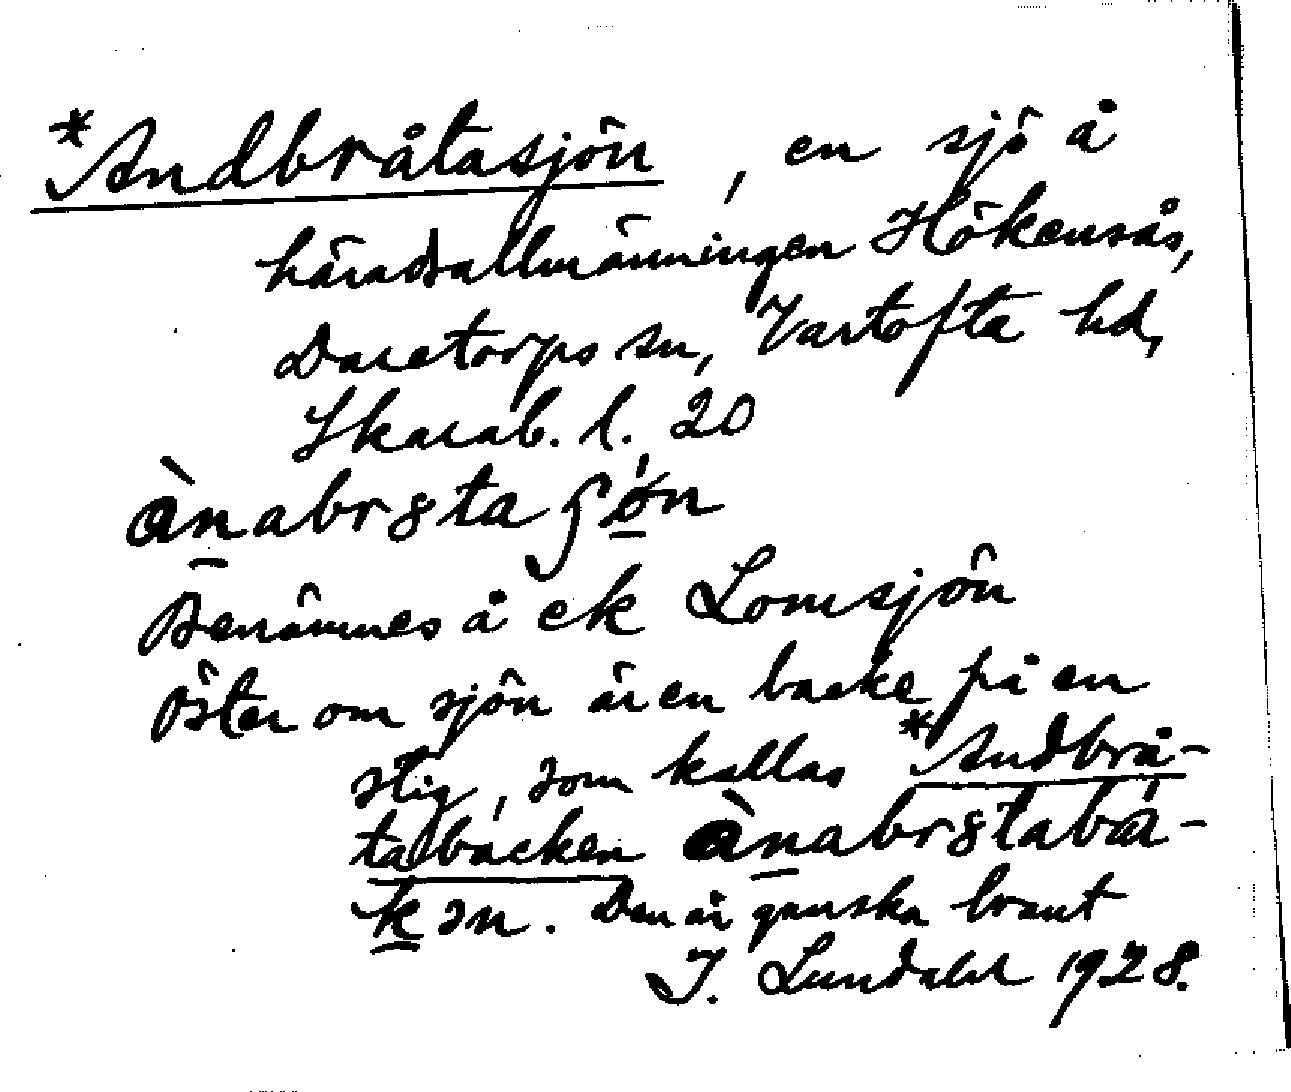 *Andbråtasjön, en sjö å
häradsallmänningen Hökensås,
Daretorps sn, Vartofta hd,
Skarab. l. 20
ànabr8ta ʃón
Benämnes å ek Lomsjön
Öster om sjön är en backe på en
stig, som kallas *Andbrå-
tabacken ànabr8tabá-
kən. Den är ganska brant
I. Lundahl 1928.